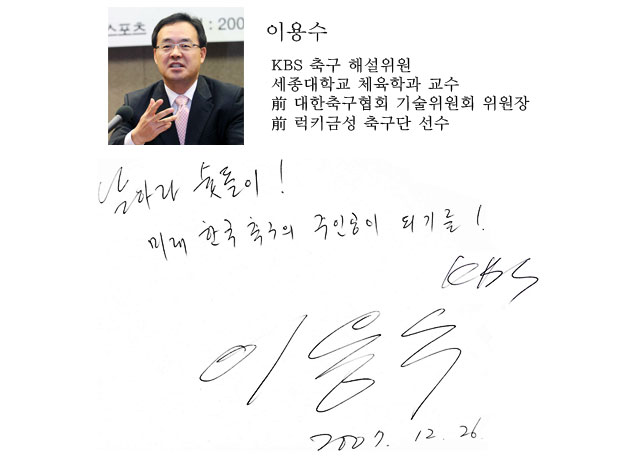 스포츠 : 200
이용수
KBS 축구 해설위원
세종대학교 체육학과 교수
前 대한축구협회 기술위원회 위원장
前 럭키금성 축구단 선수
날아라 슛돌이!
미래 한국 축구의 주인공이 되기를!
KBS
이용수
2007. 12. 26.